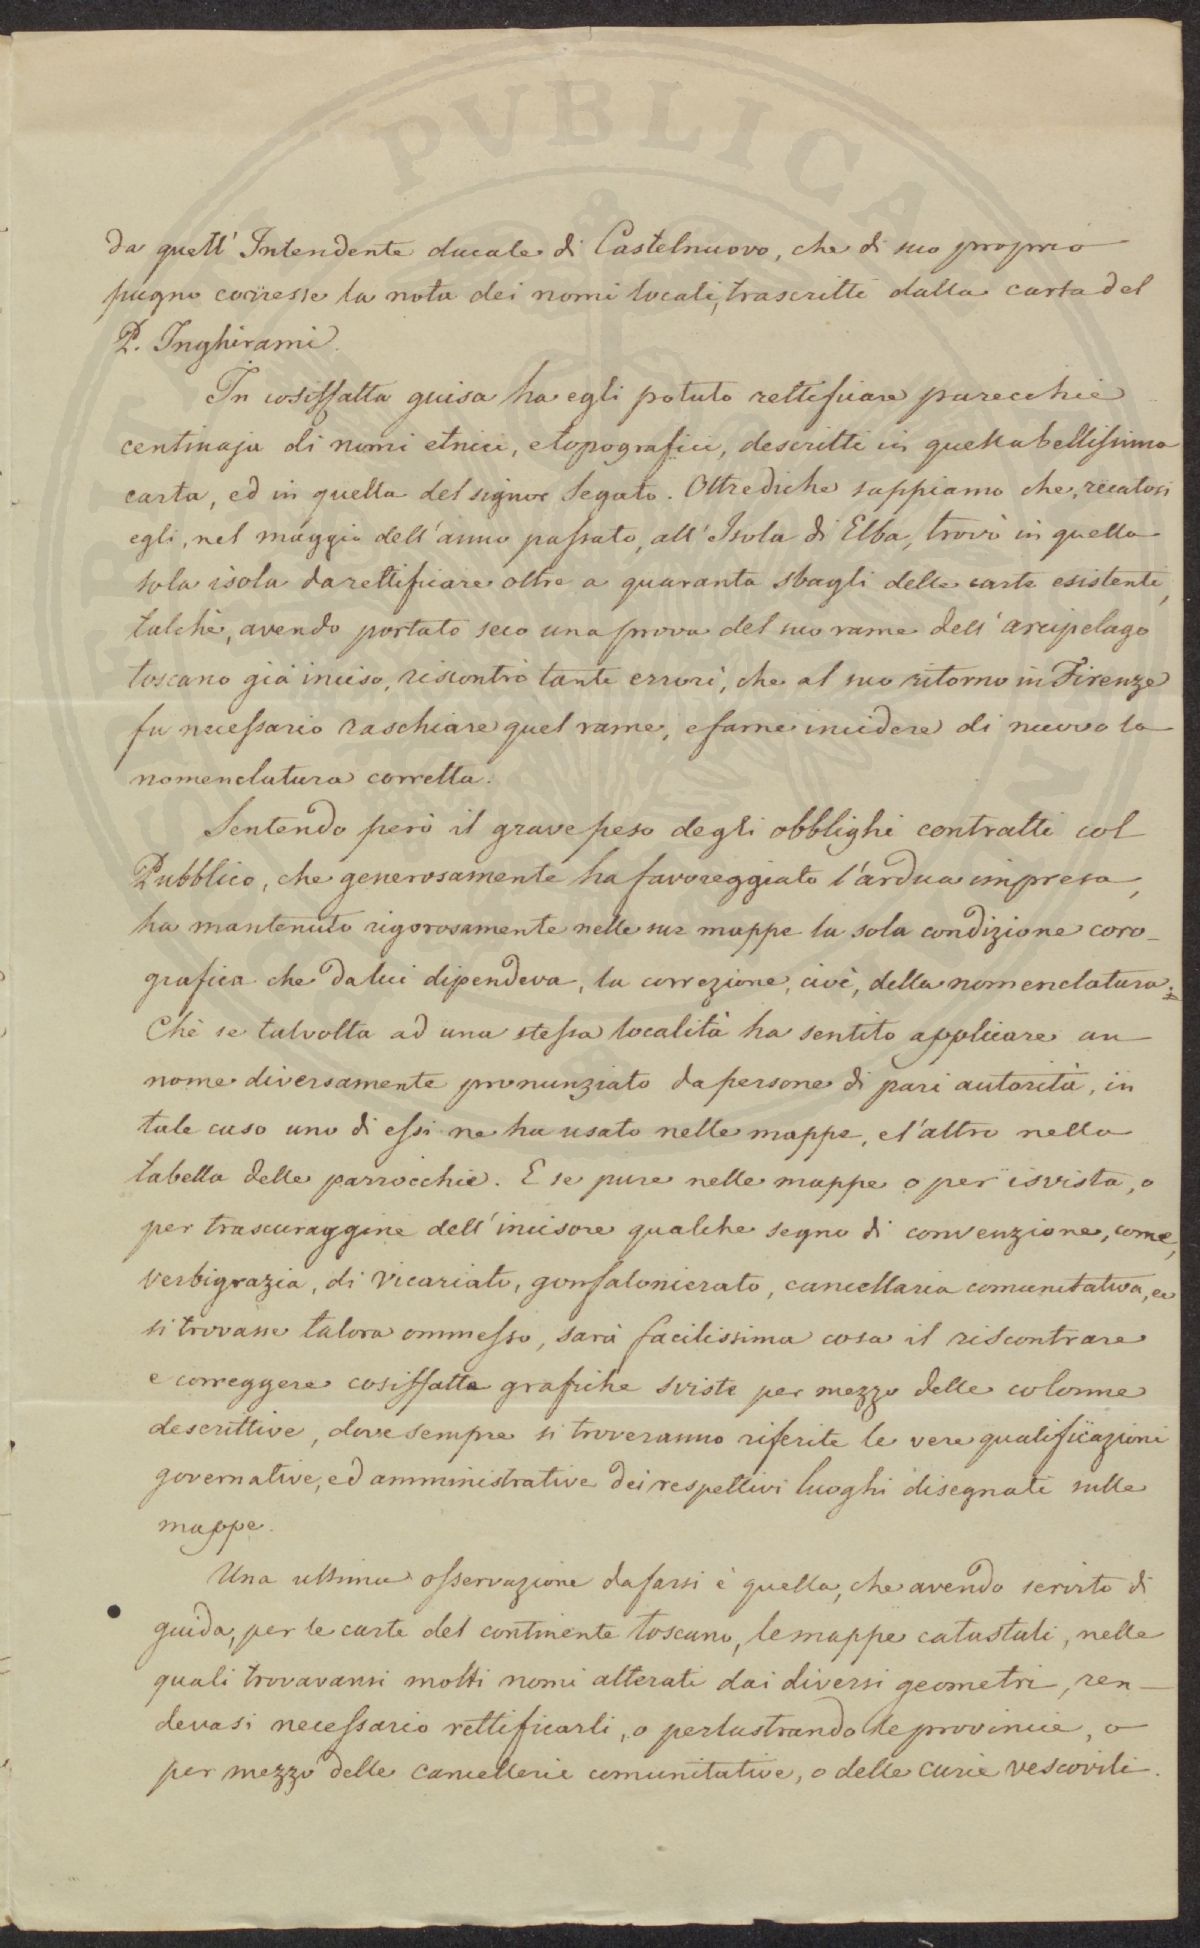 da quell' Intendente ducale di Castelnuovo, che di suo proprio
pugno corresse la nota dei nomi locali, trascritti dalla carta del
P. Inghirami.
In cosiffatta guisa ha egli potuto rettificare parecchie
centinaja di nomi etnici, e topografici, descritti in quella bellissima
carta, ed in quella del signor Segato. Oltrediche sappiamo che, recatosi
egli, nel maggio dell'anno passato, all'Isola di Elba, trovò in quella
sola isola da rettificare oltre a quaranta sbagli delle carte esistenti,
talchè, avendo portato seco una prova del suo rame dell'arcipelago
toscano già inciso, riscontrò tanti errori, che al suo ritorno in Firenze
fu necessario raschiare quel rame, e farne incidere di nuovo la
nomenclatura corretta.
Sentendo però il grave peso degli obblighi contratti col
Pubblico, che generosamente ha favoreggiato l'ardua impresa,
ha mantenuto rigorosamente nelle sue mappe la sola condizione coro-
grafica che da lui dipendeva, la correzione, cioè, della nomenclatura.
Chè se talvolta ad una stessa località ha sentito applicare un
nome diversamente pronunziato da persone di pari autorità, in
tale caso uno di essi ne ha usato nelle mappe, e l'altro nella
tabella delle parrocchie. E se pure nelle mappe o per isvista, o
per trascuraggine dell'incisore qualche segno di convenzione, come,
verbigrazia, di vicariato, gonfalonierato, cancellaria comunitativa, ec
si trovasse talora ommesso, sarà facilissima cosa il riscontrare
e correggere cosiffatte grafiche sviste per mezzo delle colonne
descrittive, dove sempre si troveranno riferite le vere qualificazioni
governative, ed amministrative dei respettivi luoghi disegnati sulle
mappe.
Una ultima osservazione da farsi è quella, che avendo servito di
guida, per le carte del continente toscano, le mappe catastali, nelle
quali trovavansi molti nomi alterati dai diversi geometri, ren-
devasi necessario rettificarli, o perlustrando le provincie, o
per mezzo delle cancellerie comunitative, o delle curie vescovili.
PVBLICA